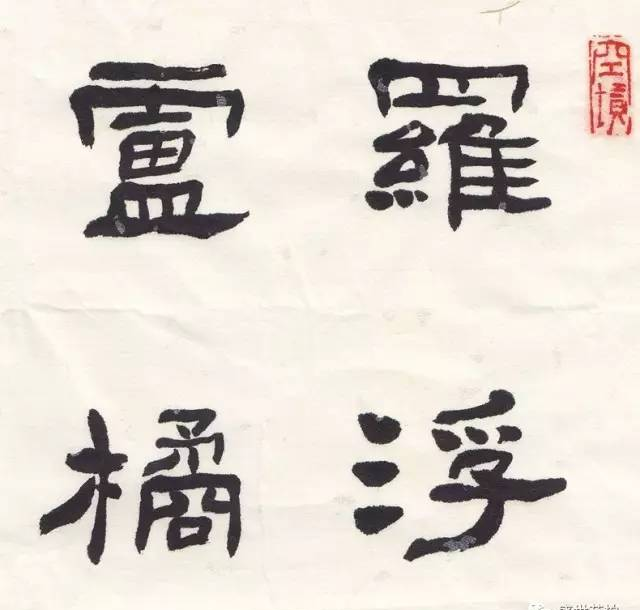 羅浮
盧橘
空境